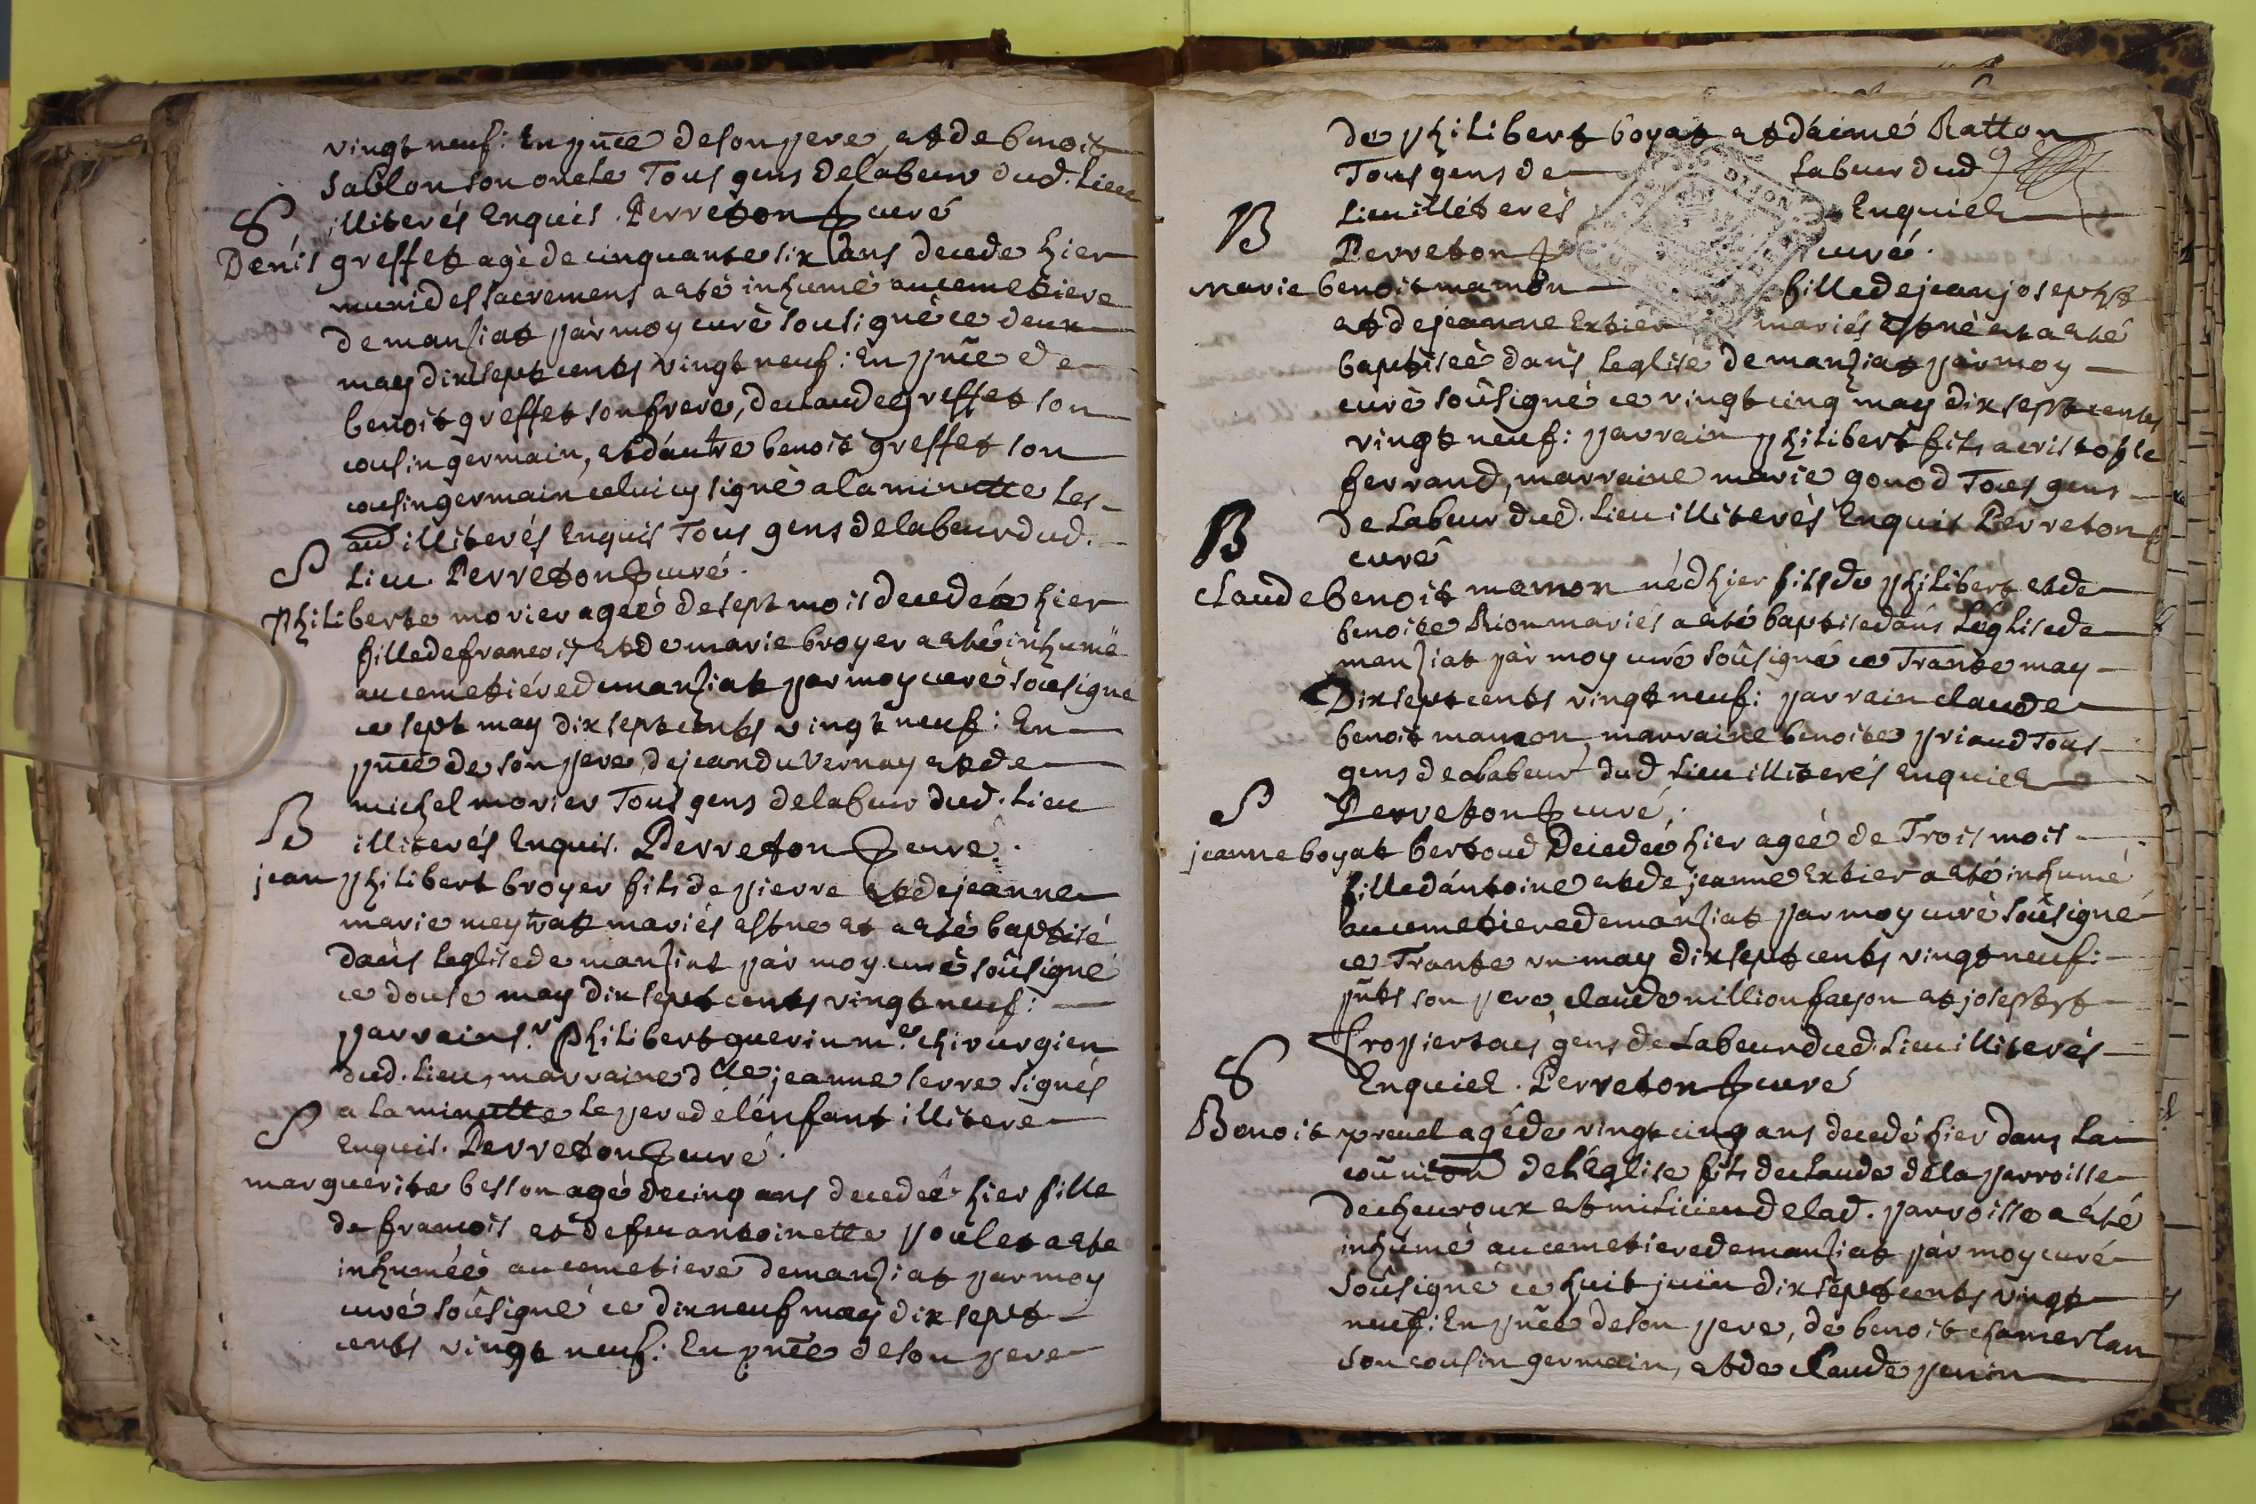 vingt neuf: En pñce de son pere, et de benoit
Sablon son oncle Tous gens de labeur dud. Lieu
S illiterés Enquis. Perreton curé
Denis greffet agè de cinquante six ans decede hier
muni des sacremens a eté inhumé au cemetiere
de manziat par moy curè sousignè ce deux
may dixsept cents vingt neuf: En pñce de
benoit greffet son frere, de claude greffet son
cousin germain, et d'autre benoit greffet son
cousin germain celui cy signè a la minutte les
aud illiterés Enquis Tous gens de labeur dud.
S Lieu. Perreton curé.
philiberte morier ageé de sept mois decedeé hier
fille de francois et de marie broyer a eté inhumé
au cemetiére de manziat par moy curè soûsigné
ce sept may dix sept cents vingt neuf: En
pñce de son pere, de jean du Vernay et de
michel morier Tous gens de labeur dud. Lieu
B illiterés Enquis. Perreton curé.
jean philibert broyer fils de pierre et de jeanne
marie meytrat mariés est ne et a eté baptisé
dans leglise de manziat par moy curè soûsigné
ce douse may dix sept cents vingt neuf:
parrain s.r philibert guerin m.e chirurgien
dud. Lieu, marraine dlle jeanne serre signés
a la minutte le pere de l'énfant illitere
S Enquis. Perreton curé.
marguerite besson agé de cinq ans decedeé hier fille
de francois et de fue antoinette poulet a ete
inhumeé au cemetiere de manziat par moy
curé soûsigné ce dix neuf may dix sept
cents vingt neuf: En pñce de son pere
de philibert boyat et d'aimé Ratton
Tous gens de Labeur dud
B Lieu illéterés Enquiez
Perreton curé.
marie benoit mamon fille de jean joseph
et de jeanne Extier mariés est nè et a eté
baptiseè dans leglise de manziat par moy
curè soûsigné ce vingt cinq may dix sept cents
vingt neuf: parrain philibert fils a cristophle
ferrand, marraine marie gonod Tous gens
B de Labeur dud. Lieu illiterès Enquis Perreton
curé
claude benoit mamon né d'hier fils de philibert et de
benoite Rion mariés a eté baptise dans l'église de
manziat par moy curé soûsigné ce Trante may
Dix sept cents vingt neuf: parrain claude
benoit mamon, marraine benoite priaud Tous
gens de labeur dud Lieu illiterés Enquiez
S Perreton curé.
jeanne boyat bertoud Decedeé hier ageé de Trois mois
fille d'antoine et de jeanne Extier a eté inhumé
au cemetiere de manziat par moy curé soûsigné
ce Trante un may dix sept cents vingt neuf:
pñts son pere, claude nillion façon et josepht
Tropier tous gens de Labeur dud. Lieu illiterés
S Enquiez. Perreton curé
Benoit preuel agé de vingt cinq ans decedé hier dans la
coũnion de l'église fils de claude de la parroisse
de cheuroux et milicien de lad. parroisse a eté
inhumé au cemetiere de manziat par moy curé
soûsigné ce huit juin dix sept cents vingt
neuf: En pñce de son pere, de benoit chamerlan
son cousin germain, et de claude penin